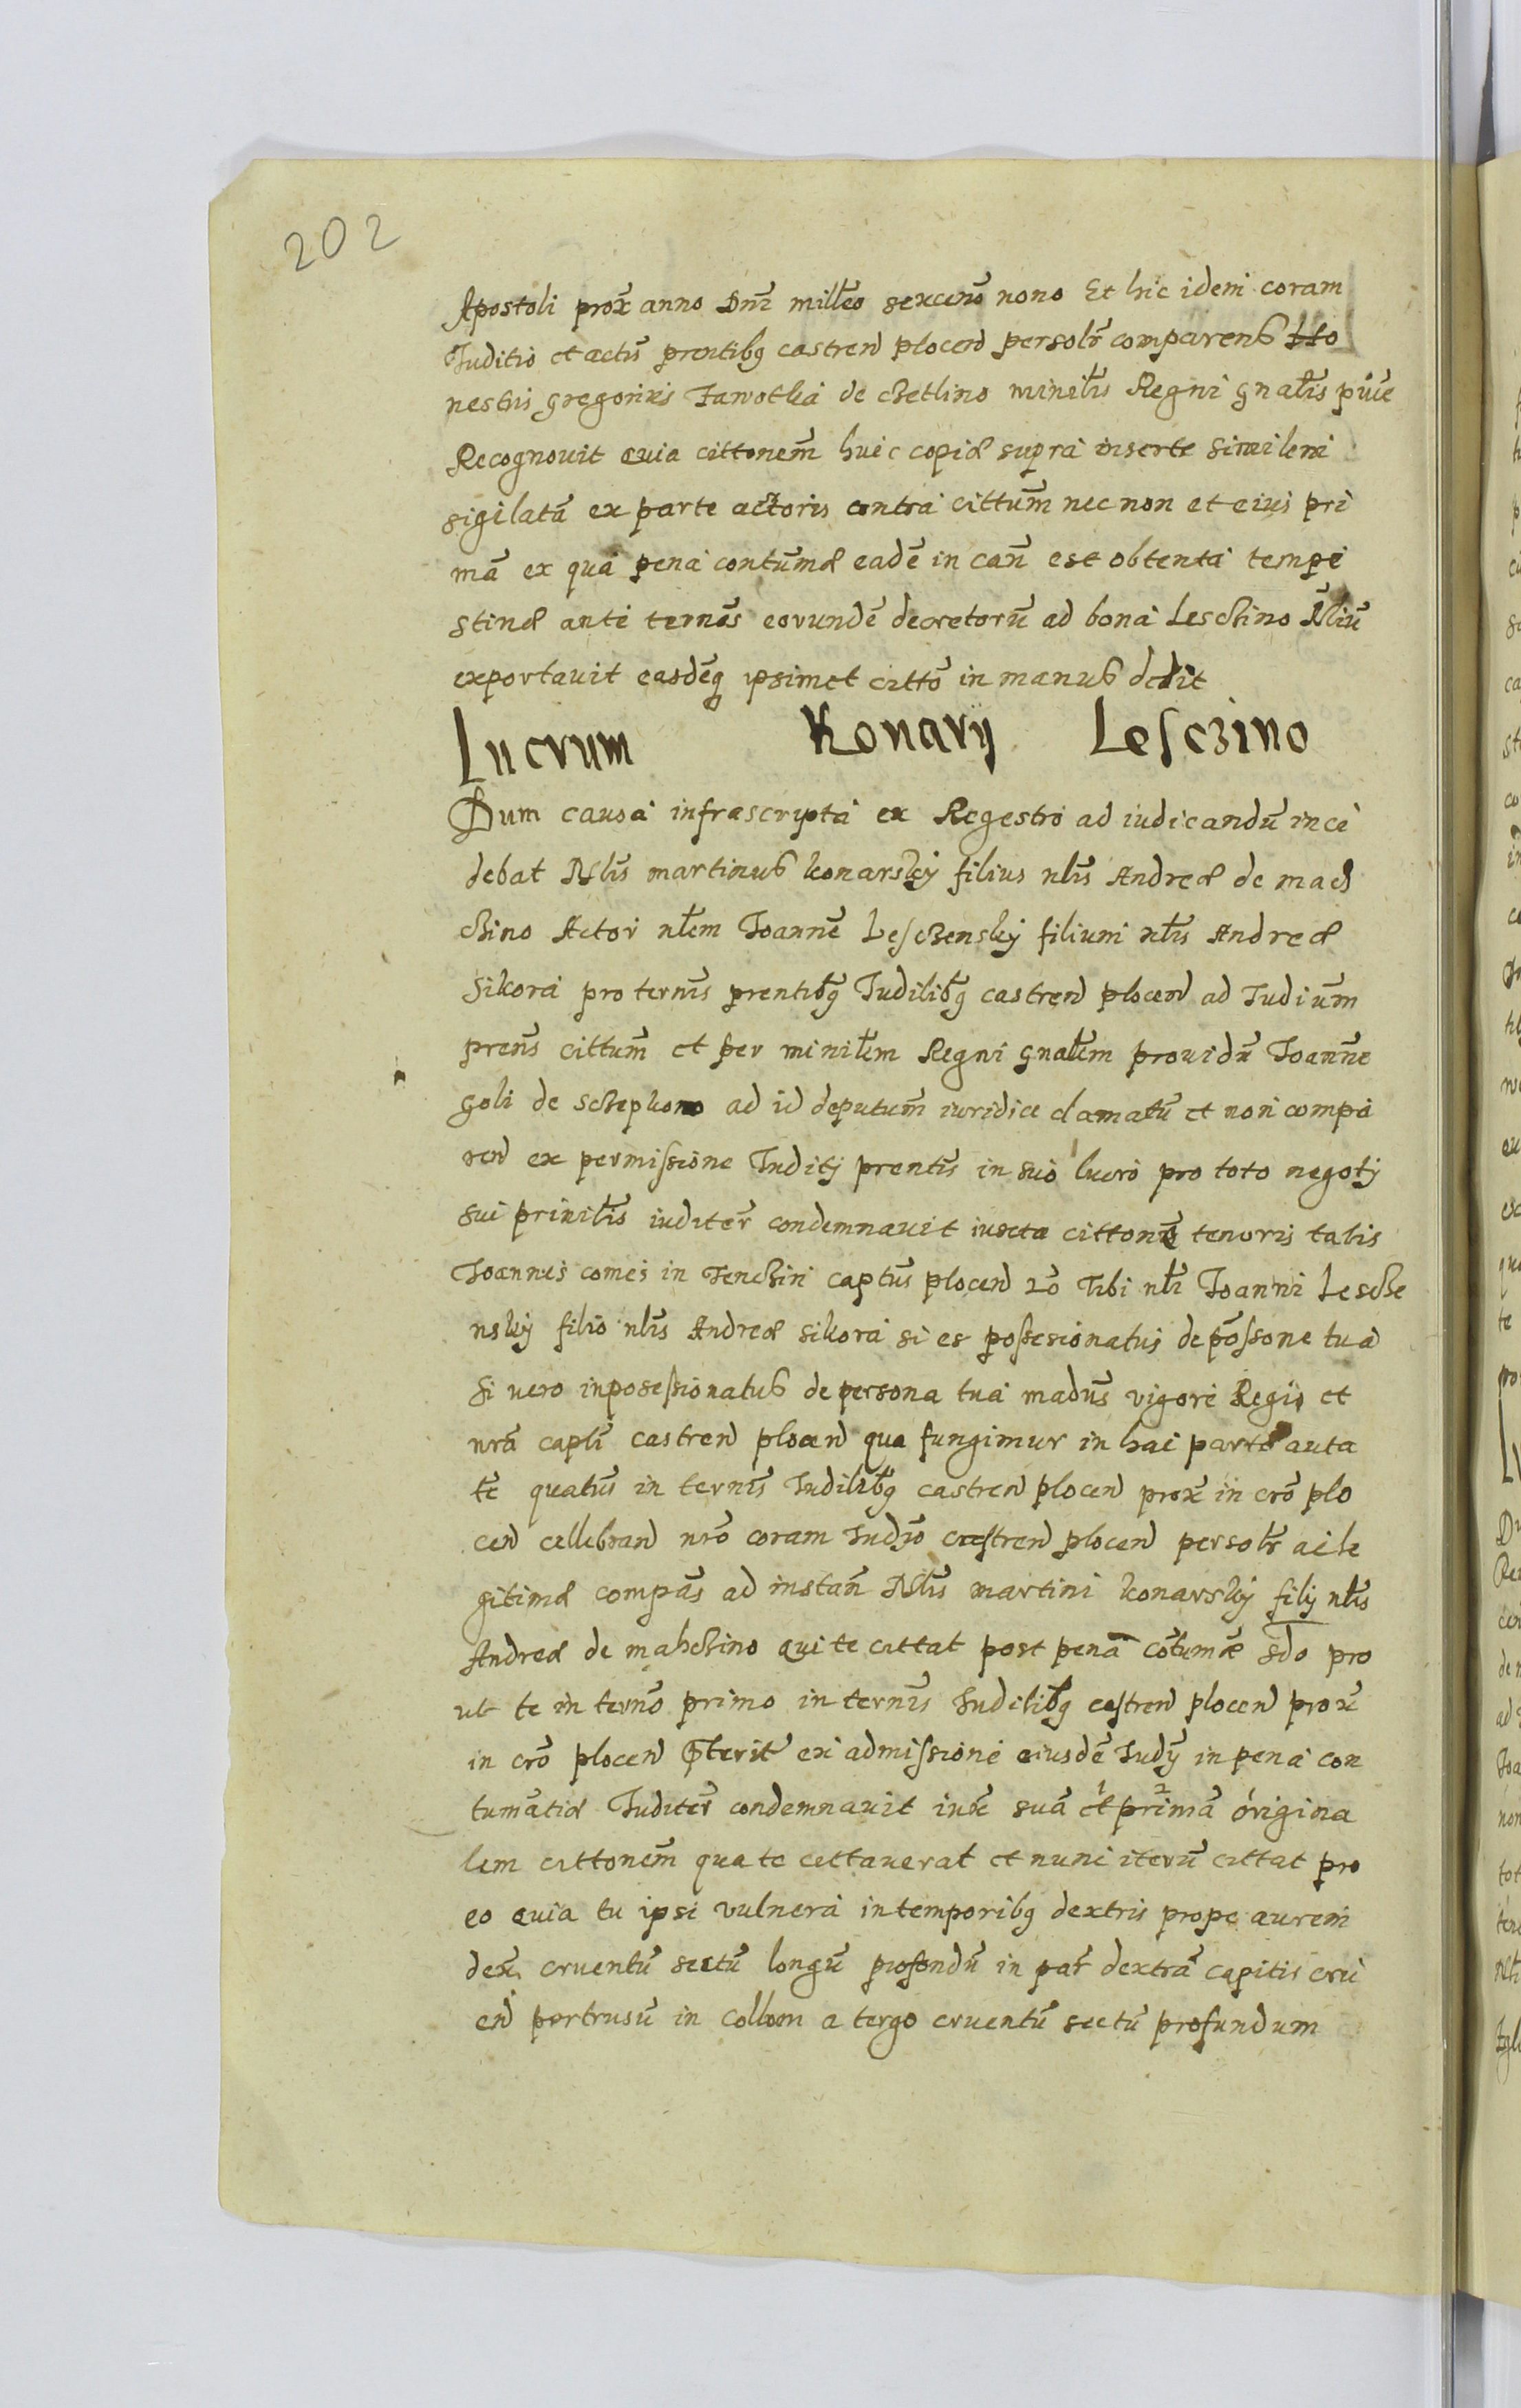 202
Apostoli prox̃ anno Dn̄i mill̃eo sexcen̄o nono Et hic idem coram
Iuditio et actis̃ prentibq castren plocen persolr̃ comparens Ho
nestus gregorius Jawotka de chetlino minil̃is Regni gnal̃is puice
Recognouit quia cittonem̃ huic copiæ supra inserte similem
sigilatã ex parte actoris contra cittum̃ nec non et eius pri
mã ex qua pena contum̃æ eadẽ in cañ est obtenta tempe
stinæ ante ternos̃ eorundẽ decretorũ ad bona Leschino Ñliũ
exportauit easdẽq ipsimet citto in manus dedit
Lucrum Konarÿ Lesczino
Dum causa infrascripta ex Regestro ad iudicandũ ince
debat Nlis̃ martinus konarskÿ filius nlis̃ Andreæ de mach
chino Actor nl̃em Joannẽ Leschenskÿ filium nl̃is Andreæ
Sikora pro ternis̃ prentibq Iudilibq castren plocen ad Iudium̃
prens̃ cittum̃ et per minil̃em Regni gnal̃em prouidũ Joannẽ
goli de schepkono ad id deputum̃ iuridice clamatũ et non compa
ren ex permissione Iuditÿ prentis̃ in suo lucro pro toto negotÿ
sui prinil̃is iuditer̃ condemnauit iuxta cittonis̃ tenoris talis
Joannes comes in Tenchin captus̃ plocen Tibi nl̃i Joanni Lesche
nskÿ filio nlis̃ Andreæ sikora si es possesionatus de possone tua
si uero inposessionatus de persona tua madus̃ vigore Regio et
nrã capli castren plocen qua fungimur in hac parte auta
tẽ quatus̃ in ternis̃ Iudilibq castren plocen prox̃ in crõ plo
cen cellebran nrõ coram Iudÿo castren plocen persolr̃ ac le
gitimæ compas̃ ad instañ Nlis̃ martini konarskÿ filÿ nlis̃
Andreæ de mahchino qui te cittat post penã cotumæ sdo pro
ut te in terno primo in ternis̃ Iudilibq castren plocen prox̃
in crõ plocen ex admissione eiusdẽ Iudÿ in pena con
tumatiæ Iuditer̃ condemnauit iux̃ suã et primã origina
lem cittonem̃ qua te cittauerat et nunc iterũ cittat pro
eo quia tu ipsi vulnera in temporibq dextris prope aurem
dex̃ cruentũ sectũ longũ profondũ in par̃ dextrã capitis cru
en pertrusũ in collom a tergo cruentũ sectũ profundum